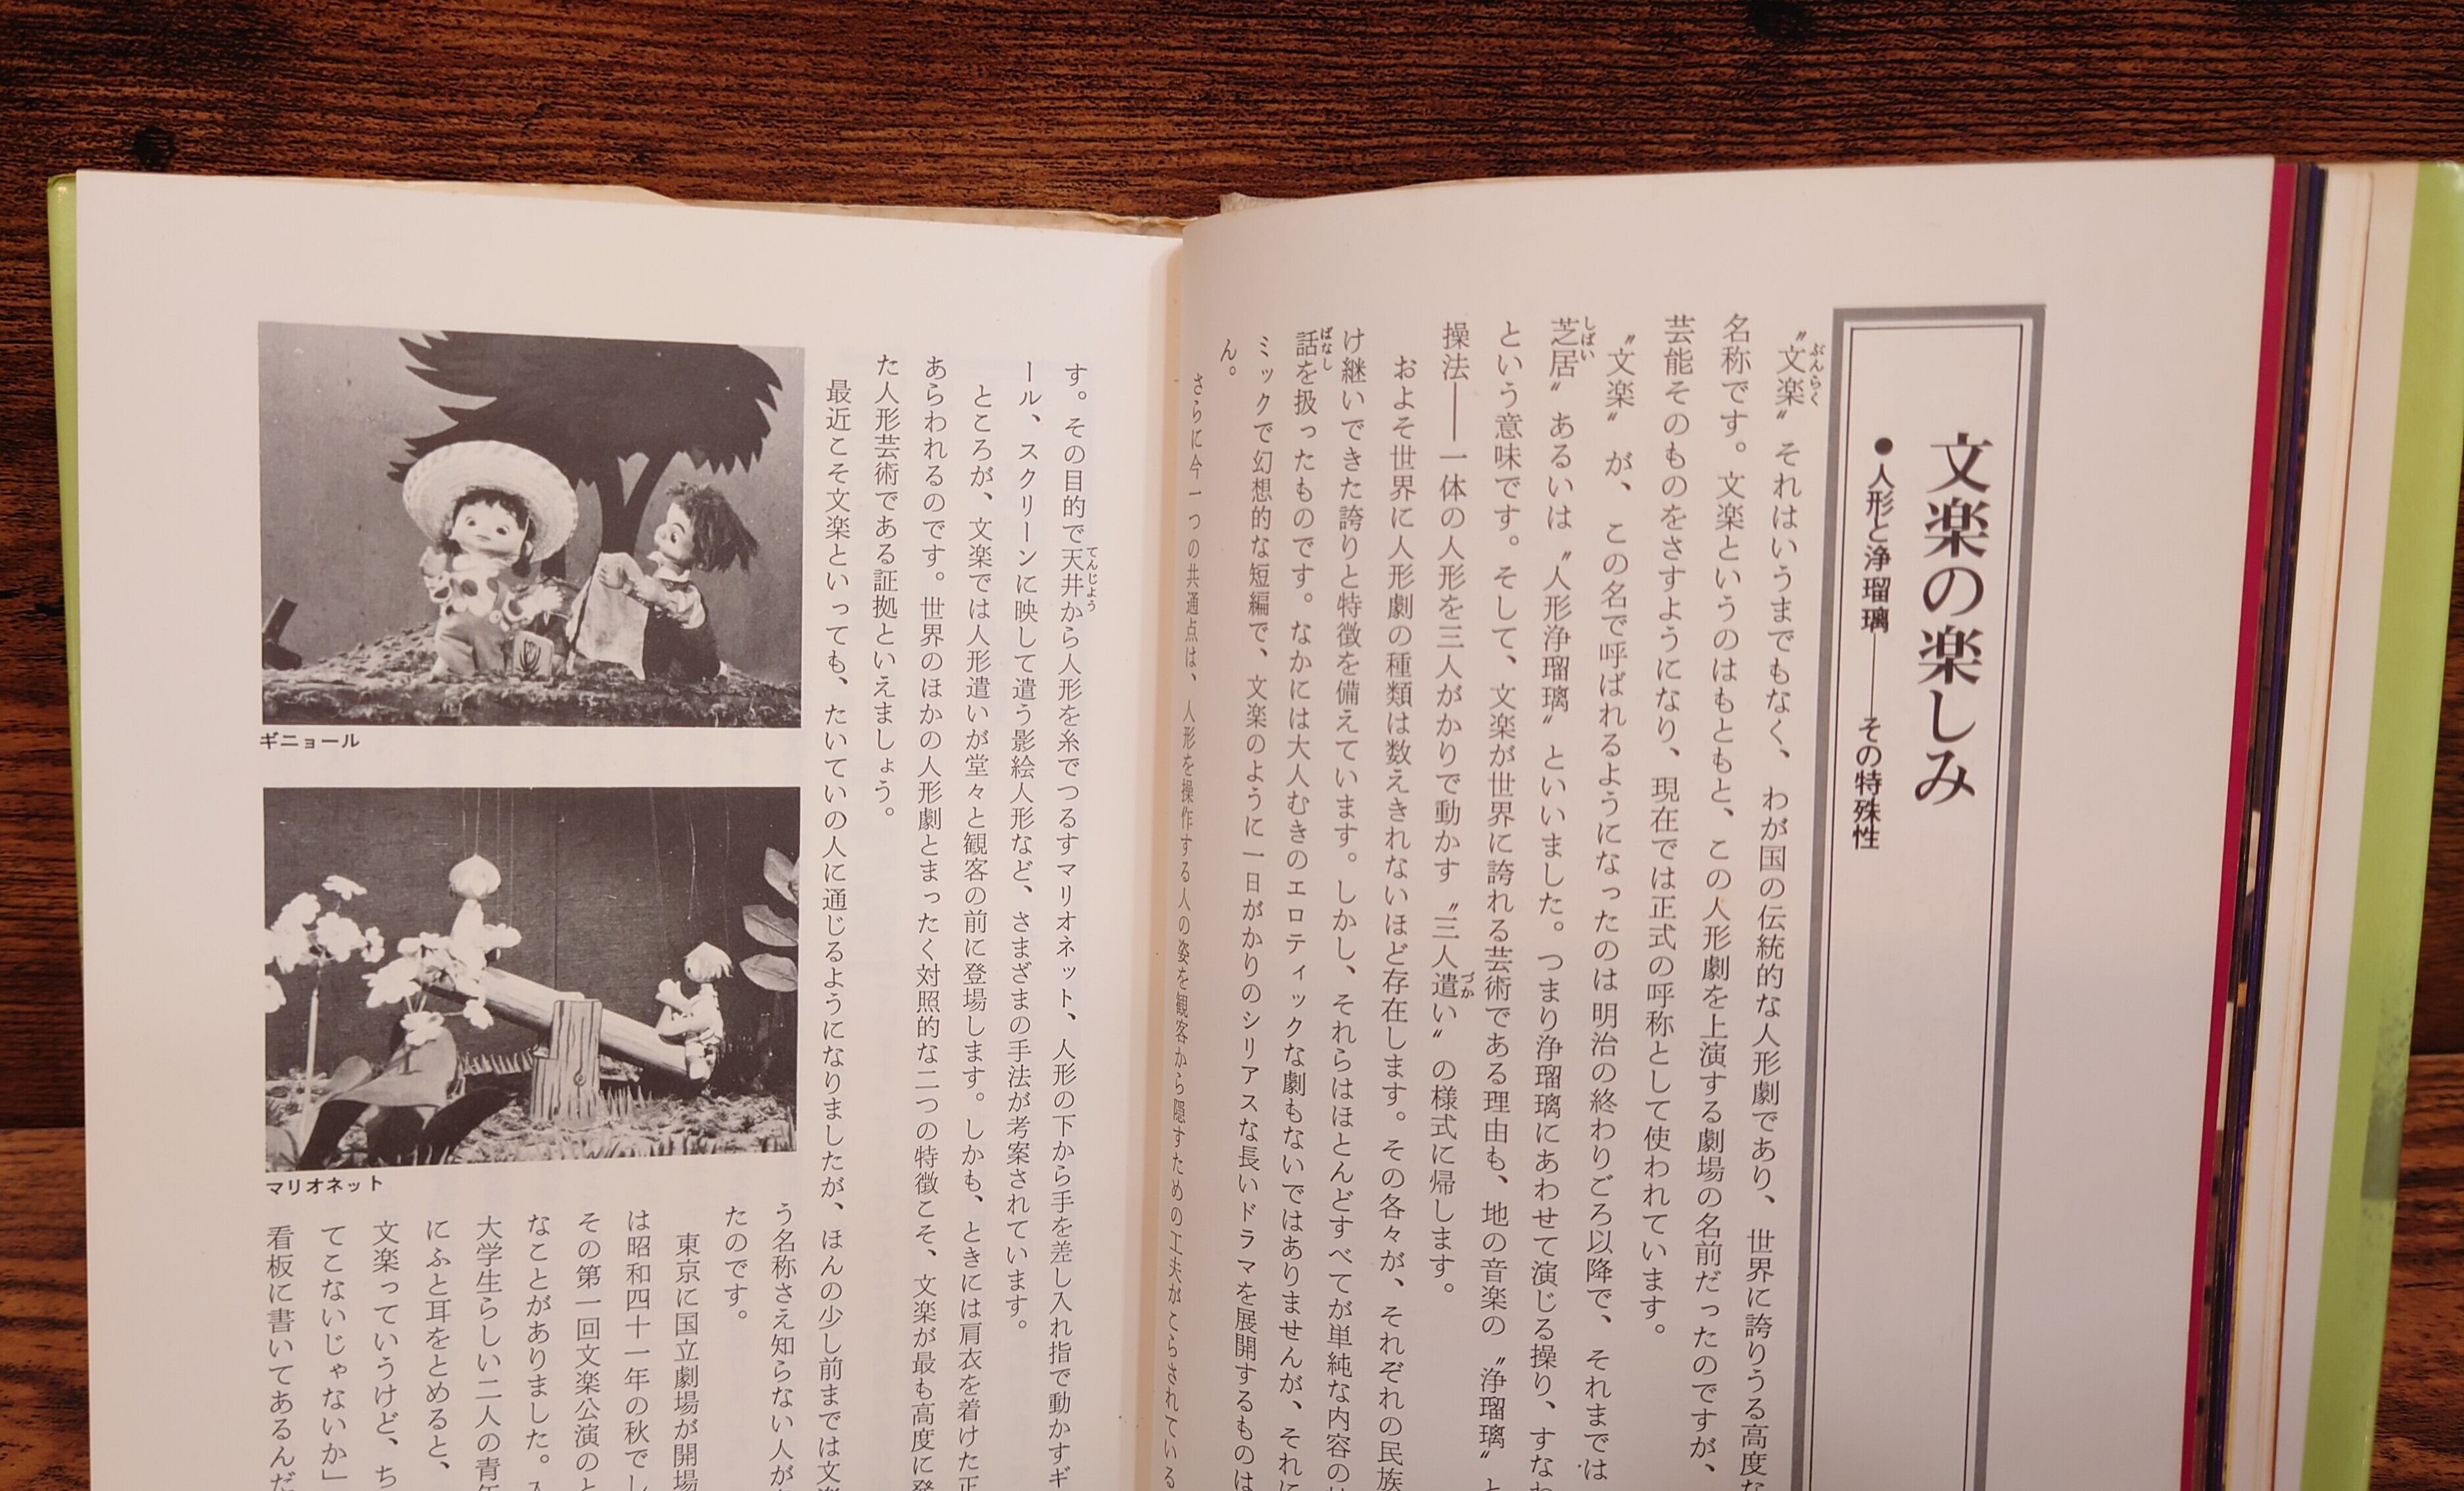 文楽の楽しみ
●人形と浄瑠璃――その特殊性
〝文楽〟それはいうまでもなく、わが国の伝統的な人形劇であり、世界に誇りうる高度な
名称です。文楽というのはもともと、この人形劇を上演する劇場の名前だったのですが、
芸能そのものをさすようになり、現在では正式の呼称として使われています。
〝文楽〟が、この名で呼ばれるようになったのは明治の終わりごろ以降で、それまでは
芝居〟あるいは〝人形浄瑠璃〟といいました。つまり浄瑠璃にあわせて演じる操り、すなわ
という意味です。そして、文楽が世界に誇れる芸術である理由も、地の音楽の〝浄瑠璃〟と
操法――一体の人形を三人がかりで動かす〝三人遣い〟の様式に帰します。
およそ世界に人形劇の種類は数えきれないほど存在します。その各々が、それぞれの民族
け継いできた誇りと特徴を備えています。しかし、それらはほとんどすべてが単純な内容の
話を扱ったものです。なかには大人むきのエロティックな劇もないではありませんが、それに
ミックで幻想的な短編で、文楽のように一日がかりのシリアスな長いドラマを展開するものは
ん。
さらに今一つの共通点は、人形を操作する人の姿を観客から隠すための工夫がこらされている
す。その目的で天井から人形を糸でつるすマリオネット、人形の下から手を差し入れ指で動かすギ
ール、スクリーンに映して遣う影絵人形など、さまざまの手法が考案されています。
ところが、文楽では人形遣いが堂々と観客の前に登場します。しかも、ときには肩衣を着けた正
あらわれるのです。世界のほかの人形劇とまったく対照的な二つの特徴こそ、文楽が最も高度に発
た人形芸術である証拠といえましょう。
最近こそ文楽といっても、たいていの人に通じるようになりましたが、ほんの少し前までは文楽
う名称さえ知らない人が
たのです。
東京に国立劇場が開場
は昭和四十一年の秋でし
その第一回文楽公演のと
なことがありました。
大学生らしい二人の青年
にふと耳をとめると、
文楽っていうけど、ち
てこないじゃないか」
看板に書いてあるんだ
ギニョール
マリオネット